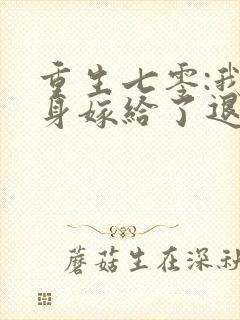 重生七零:我
身嫁给了退
蘑菇生在深秋